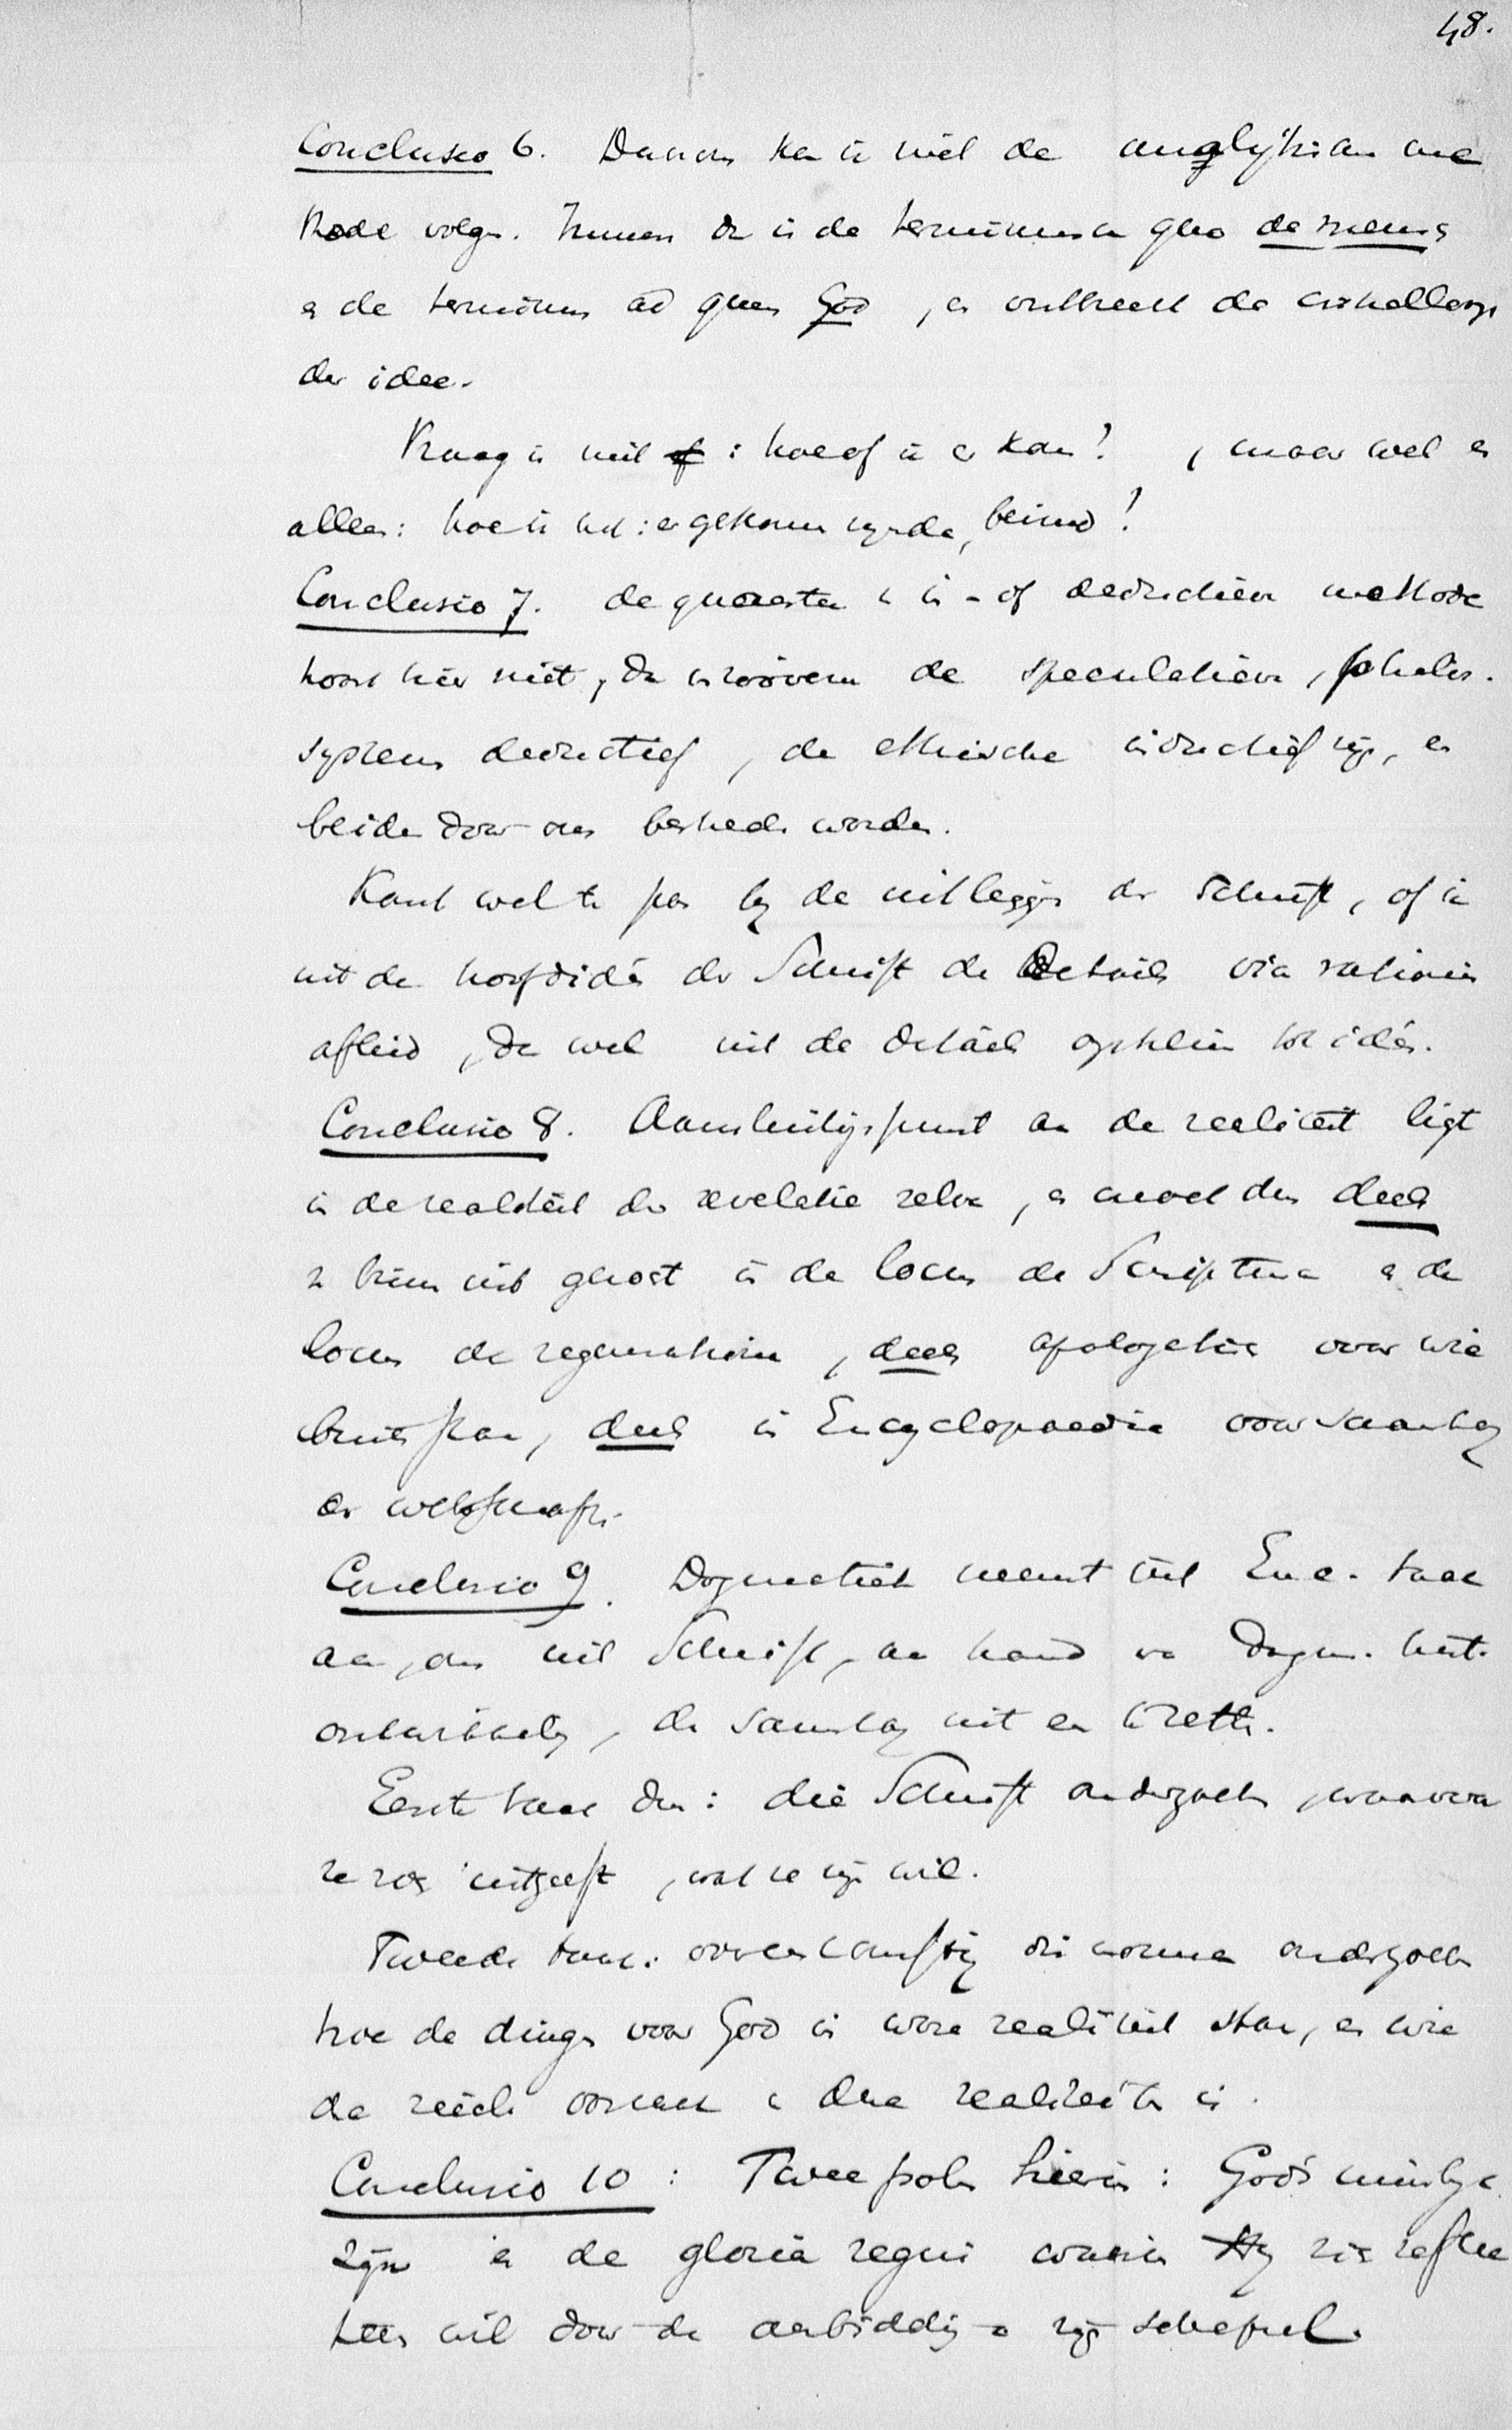 48.
Conclusio 6. Daarom kan ik niet de analytische me
thode volgen. Immers dan is de terminus a quo de mens
en de terminus ad quem God, en ontbreekt de
der idee.
Vraag is niet of: hoe of ik er kan? , maar wel en
alleen: hoe ik het: er gekomen zijnde, bevind!
Conclusio 7. de quaestie v in- of deductieve methode
hoort hier niet, de speculatieve, philos.
systemen deductief, de ethische inductief zijn, en
beiden door ons bestreden worden.
Komt wel te pas bij de uitlegging der Schrift, of ik
uit de hoofdideën der Schrift de Details via rationis
afleid, dan wel uit de details opklim tot ideën.
Conclusio 8. Aansluitingspunt aan de realiteit ligt
in de realiteit der revelatie zelve, en moet dus deels
binnen uit in de locus de Scriptura en de
locus de regeneratione, deels apologetisch voor wie
buiten staan, deels in Encyclopaedie voor samenhang
der wetenschapp.
Conclusio 9. Dogmatiek neemt uit Enc. taak
aan, om uit Schrift, aan hand van Dogm. hist.
ontwikkeling, de samenhang uit en
Eerste taak dus: die Schrift onderzoeken, waarvoor
ze zich uitgeeft, wat ze zijn wil.
Tweede taak: overeenkomstig die norma onderzoeken
hoe de dingen voor God in ware realiteit staan, en wie
de oorzaak v deze realiteiten is.
Conclusio 10: Twee polen hierin: Gods
zijn en de gloria regni waarin Hij zich reflec
teeren wil door de aanbidding v zijn schepsel.